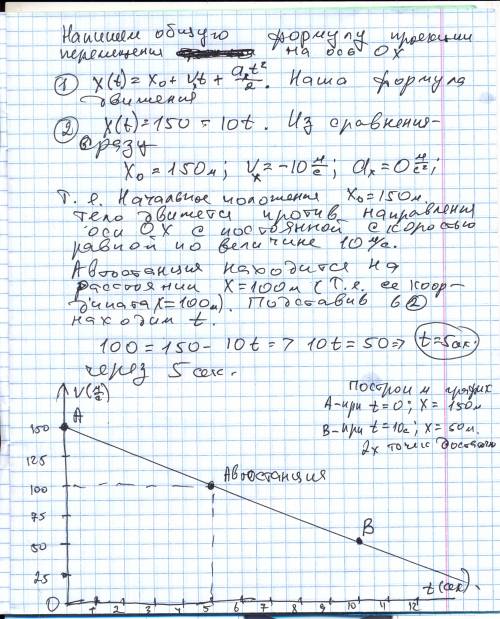 Напишем общую формулу проекции
перемещения на ось OX
① X(t) = X₀ + Vₓt + aₓt²/2. Наша формула
движения
② X(t) = 150 - 10t. Из сравнения-
сразу
X₀ = 150м; Vₓ = -10 м/с; aₓ = 0 м/с²;
Т.е. Начальное положение X₀ = 150м
тело движется против направления
оси OX с постоянной скоростью
равной по величине 10 м/с.
Автостанция находится на
расстоянии X = 100м (т.е. ее коор-
дината X = 100м). Подставив в ②
находим t.
100 = 150 - 10t => 10t = 50 => t = 5сек.
через 5 сек.
Построим график
A - при t = 0; X = 150м
B - при t = 10с; X = 50м.
2х точек достаточно
V(м/с)
A
150
125
Автостанция
100
75
B
50
25
t(сек).
0 1 2 3 4 5 6 7 8 9 10 11 12